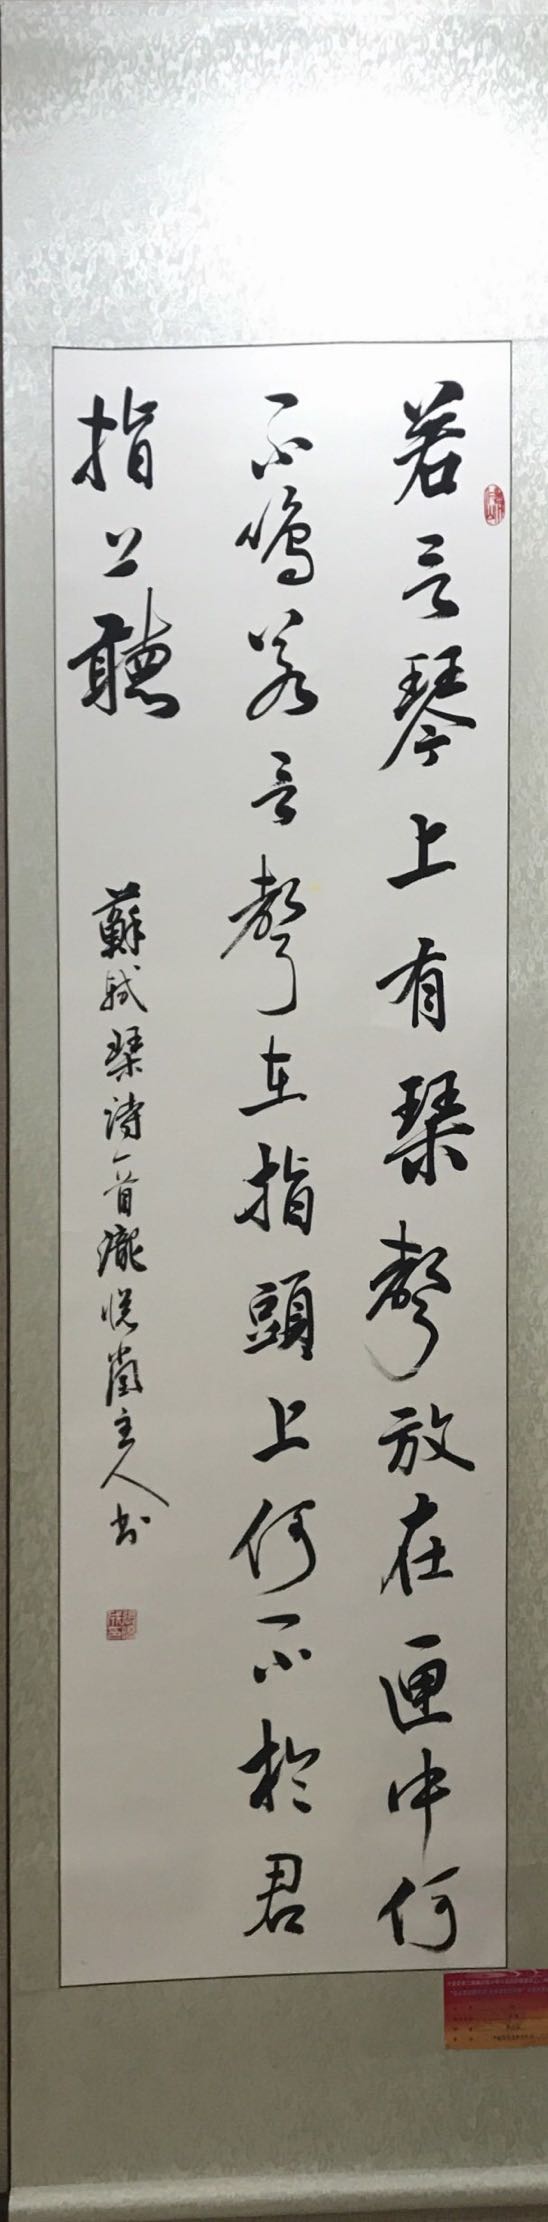 若言琴上有琹聲放在匣中何
不鳴若言聲在指頭上何不於君
指上聽
蘇軾琹詩一首瀧悦蘭主人书